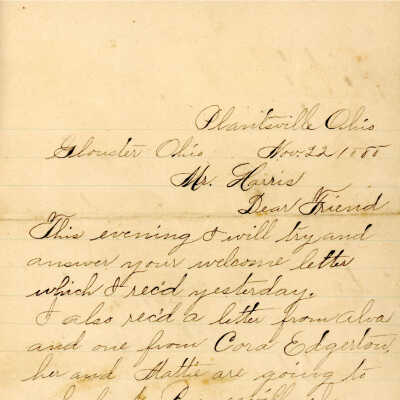 Plantsville Ohio
Glouster Ohio Nov. 22 1888
Mr. Harris
Dear Friend
This evening I will try and
answer your welcome letter
which I rec'd yesterday.
I also rec'd a letter from Alva
and one from Cora Edgerton.
her and Hattie are going to